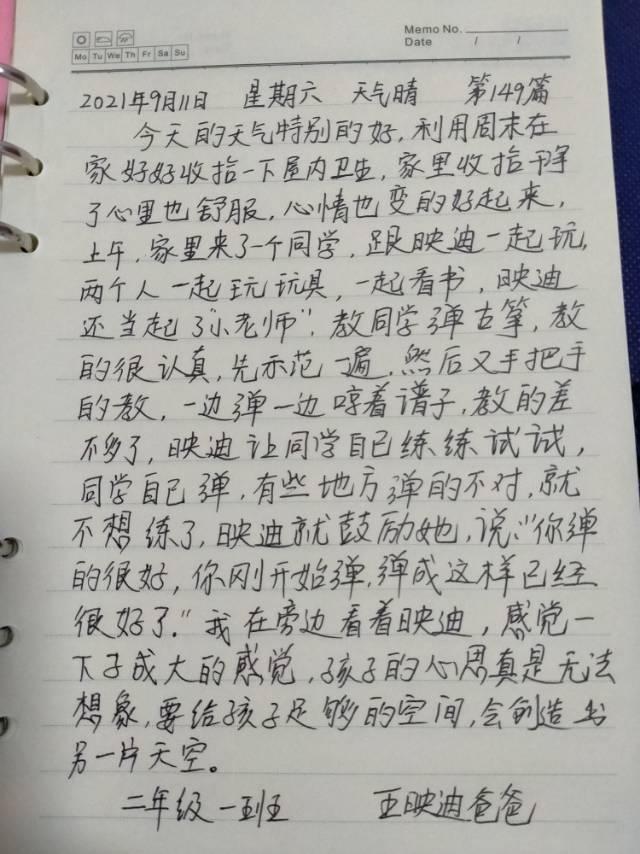 Memo No.
Mo Tu We Th Fr Sa Su
Date / /
2021年9月11日 星期六 天气晴 第149篇
今天的天气特别的好,利用周末在
家好好收拾一下屋内卫生,家里收拾干净
了心里也舒服,心情也变的好起来,
上午,家里来了一个同学,跟映迪一起玩,
两个人一起玩玩具,一起看书,映迪
还当起了“小老师”,教同学弹古筝,教
的很认真,先示范一遍,然后又手把手
的教,一边弹一边哼着谱子,教的差
不多了,映迪让同学自己练练试试,
同学自己弹,有些地方弹的不对,就
不想练了,映迪就鼓励她,说:“你弹
的很好,你刚开始弹,弹成这样已经
很好了.”我在旁边看着映迪,感觉一
下子成大的感觉,孩子的心思真是无法
想象,要给孩子足够的空间,会创造出
另一片天空。
二年级一班 王映迪爸爸